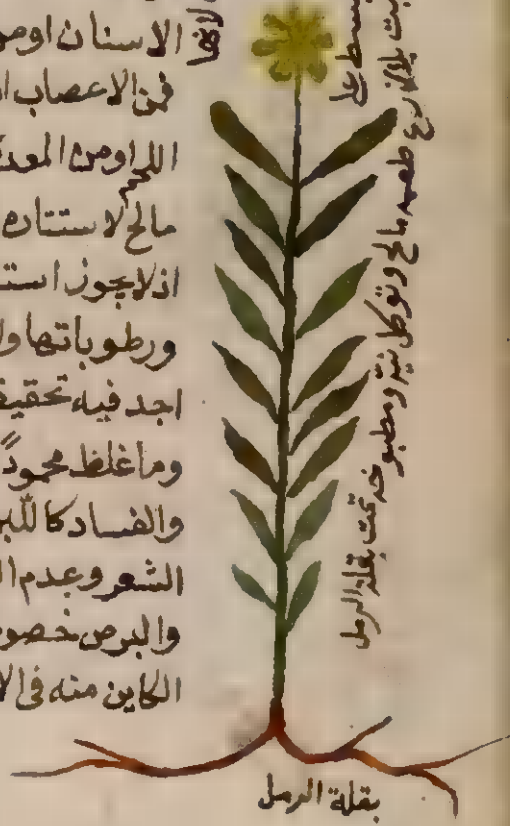 الاسنان اومن
فمن الاعصاب ا
اللراومن المعد
مالح لاستتاره
اذلايجوز است
ورطوباتها ولا
اجد فيه تحقيق
وماغلظ محموداً
والفساد كاللبن
الشعر وعدم ال
والبرص خصو
الكاين منه فى الا
طعمه مالح وتوكل نية ومطبوخة تمت بقلة الرمل
بقلة الرمل